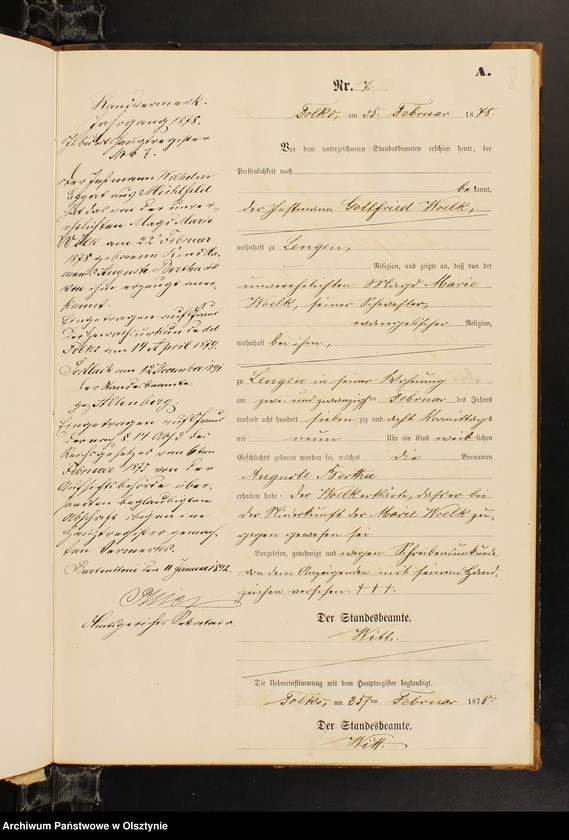 A.
8
Nr. 7.
Tolks, am 25. Februar 1878.
Vor dem unterzeichneten Standesbeamten erschien heute, der
Persönlichkeit nach
bekannt,
der Instmann Gottfried Woelk,
wohnhaft zu Lengen,
Religion, und zeigte an, daß von der
unverehelichten Magd Marie
Woelk, seiner Schwester,
evangelischer Religion,
wohnhaft bei ihm,
zu Lengen in seiner Wohnung
am zwei und zwanzigsten Februar des Jahres
tausend acht hundert siebenzig und acht Vormittags
um neun Uhr ein Kind weiblichen
Geschlechts geboren worden sei, welches die Vornamen
Auguste Bertha
erhalten habe. Der Woelk erklärte, daß er bei
der Niederkunft der Marie Woelk zu-
gegen gewesen sei.
Vorgelesen, genehmigt und wegen Schreibensunkunde
von dem Anzeigenden mit seinem Hand-
zeichen versehen. +++
Der Standesbeamte.
Witt.
Die Uebereinstimmung mit dem Hauptregister beglaubigt.
Tolks, am 25ten Februar 1878.
Der Standesbeamte.
Witt.
Randvermerk.
Jahrgang 1878.
Geburtshauptregister
No 7.
Der Instmann Wilhelm
Eggert aus
hat das von der unver-
ehelichten Magd Marie
Wölk am 22. Februar
1878 geborene Kind Na-
mens Auguste Bertha als
von ihm erzeugt aner-
kannt.
Eingetragen auf Grund
der Heirathsurkunde dd
Tolks am 14 April 1879.
am 12 November 1891
der Standesbeamte.
gez. Allenberg.
Eingetragen auf Grund
der nach § 14 Abs. 3 des
Reichsgesetzes vom 6ten
Februar 1875 von der
Aufsichtsbehörde über-
sandten beglaubigten
Abschrift obigen im
Hauptregister gemach-
ten Vermerks.
Bartenstein den 11 Januar 1892.
Amtsgerichts Sekretair
Archiwum Państwowe w Olsztynie